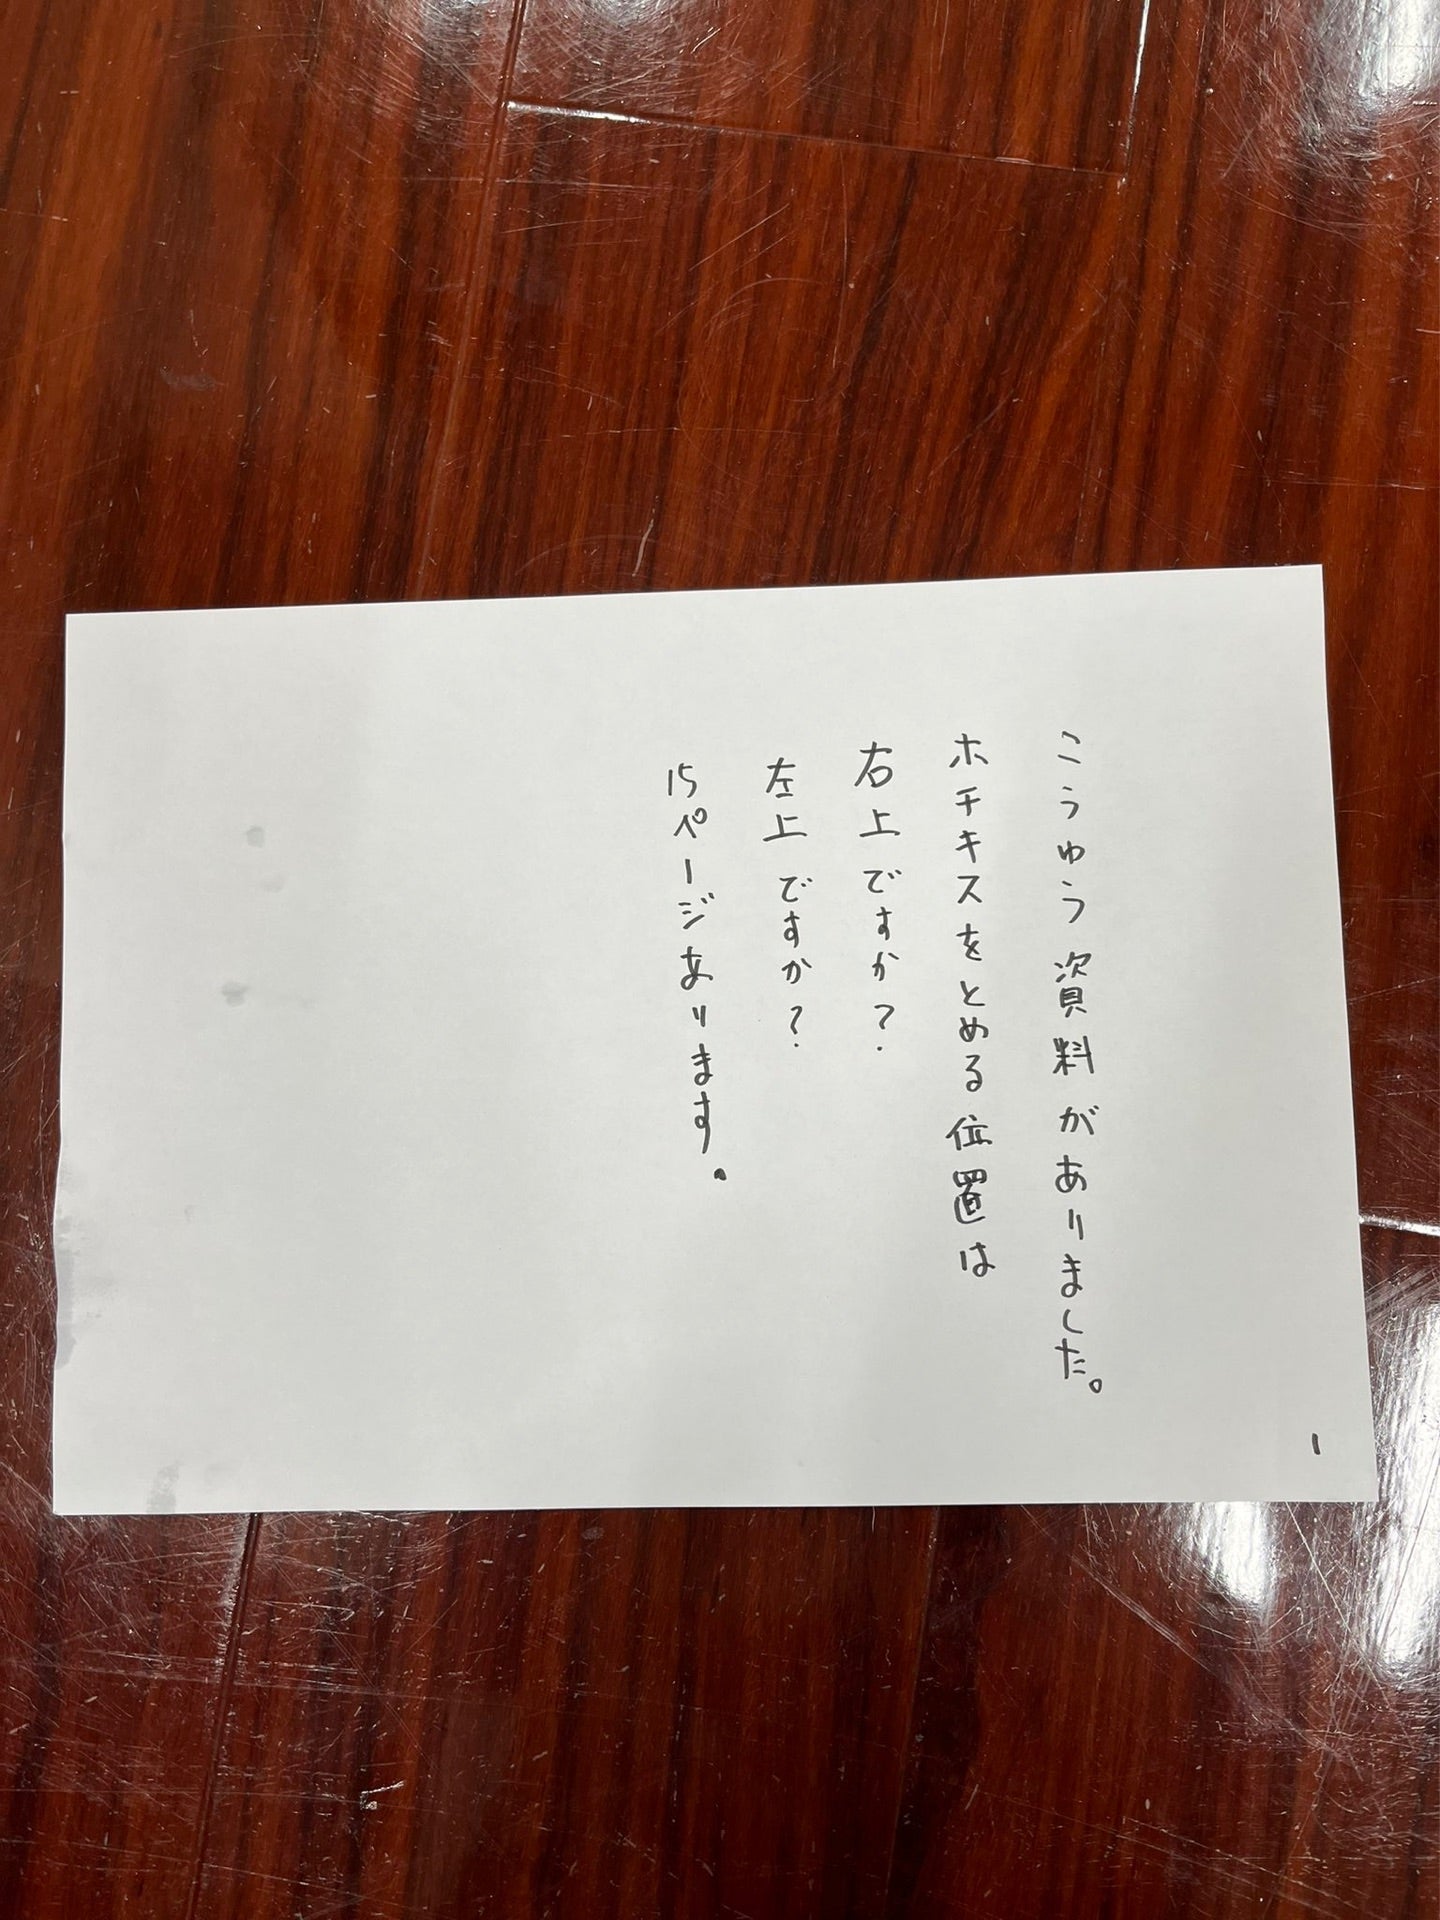 こうゆう資料がありました。
ホチキスをとめる位置は
右上ですか?
左上ですか?
15ページあります。
1